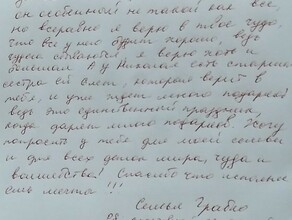 он особенный не такой как все,
но всеравно я верю в твое чудо,
что все у нас будет хорошо, ведь
чудеса случаются! я верю хоть и
большая. А у Николая есть старшая
сестра ей 8 лет, которая верит в
тебя, и уже ждет много подарков
ведь это единственный праздник,
когда дарят много подарков. Хочу
попросить у тебя для моей семьи
и для всех деток мира, чуда и
волшебства! Спасибо что исполняешь
мечты!!!
Семья Грабко